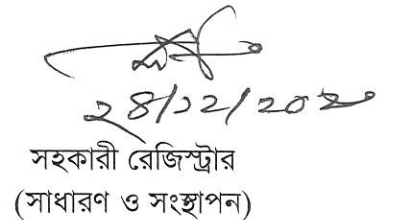 ২৪/১২/২০২০
সহকারী রেজিস্ট্রার
(সাধারণ ও সংস্থাপন)